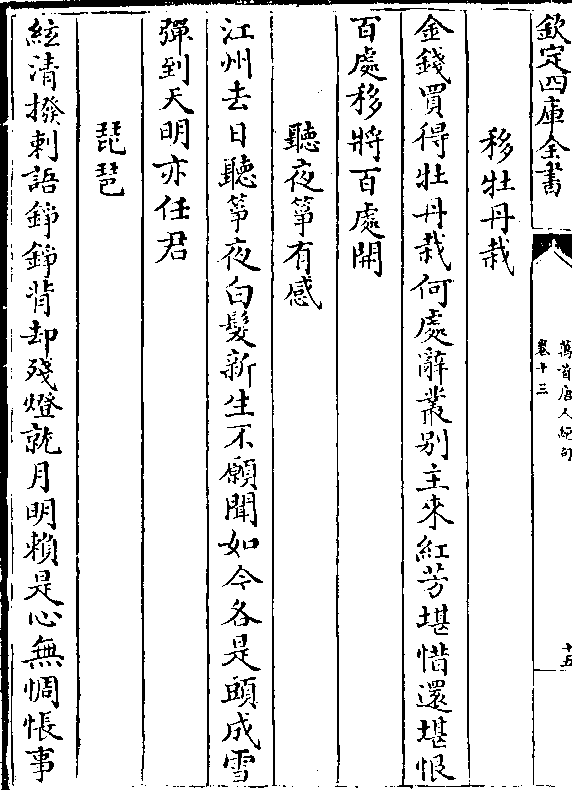 欽定四庫全書
萬首唐人絶句
卷十三
十五
移牡丹栽
金錢買得牡丹栽何處辭叢别主來紅芳堪惜還堪恨
百處移將百處開
聽夜箏有感
江州去日聽箏夜白髮新生不願聞如今各是頭成雪
彈到天明亦任君
琵琶
絃清撥剌語錚錚背却殘燈就月明賴是心無惆悵事